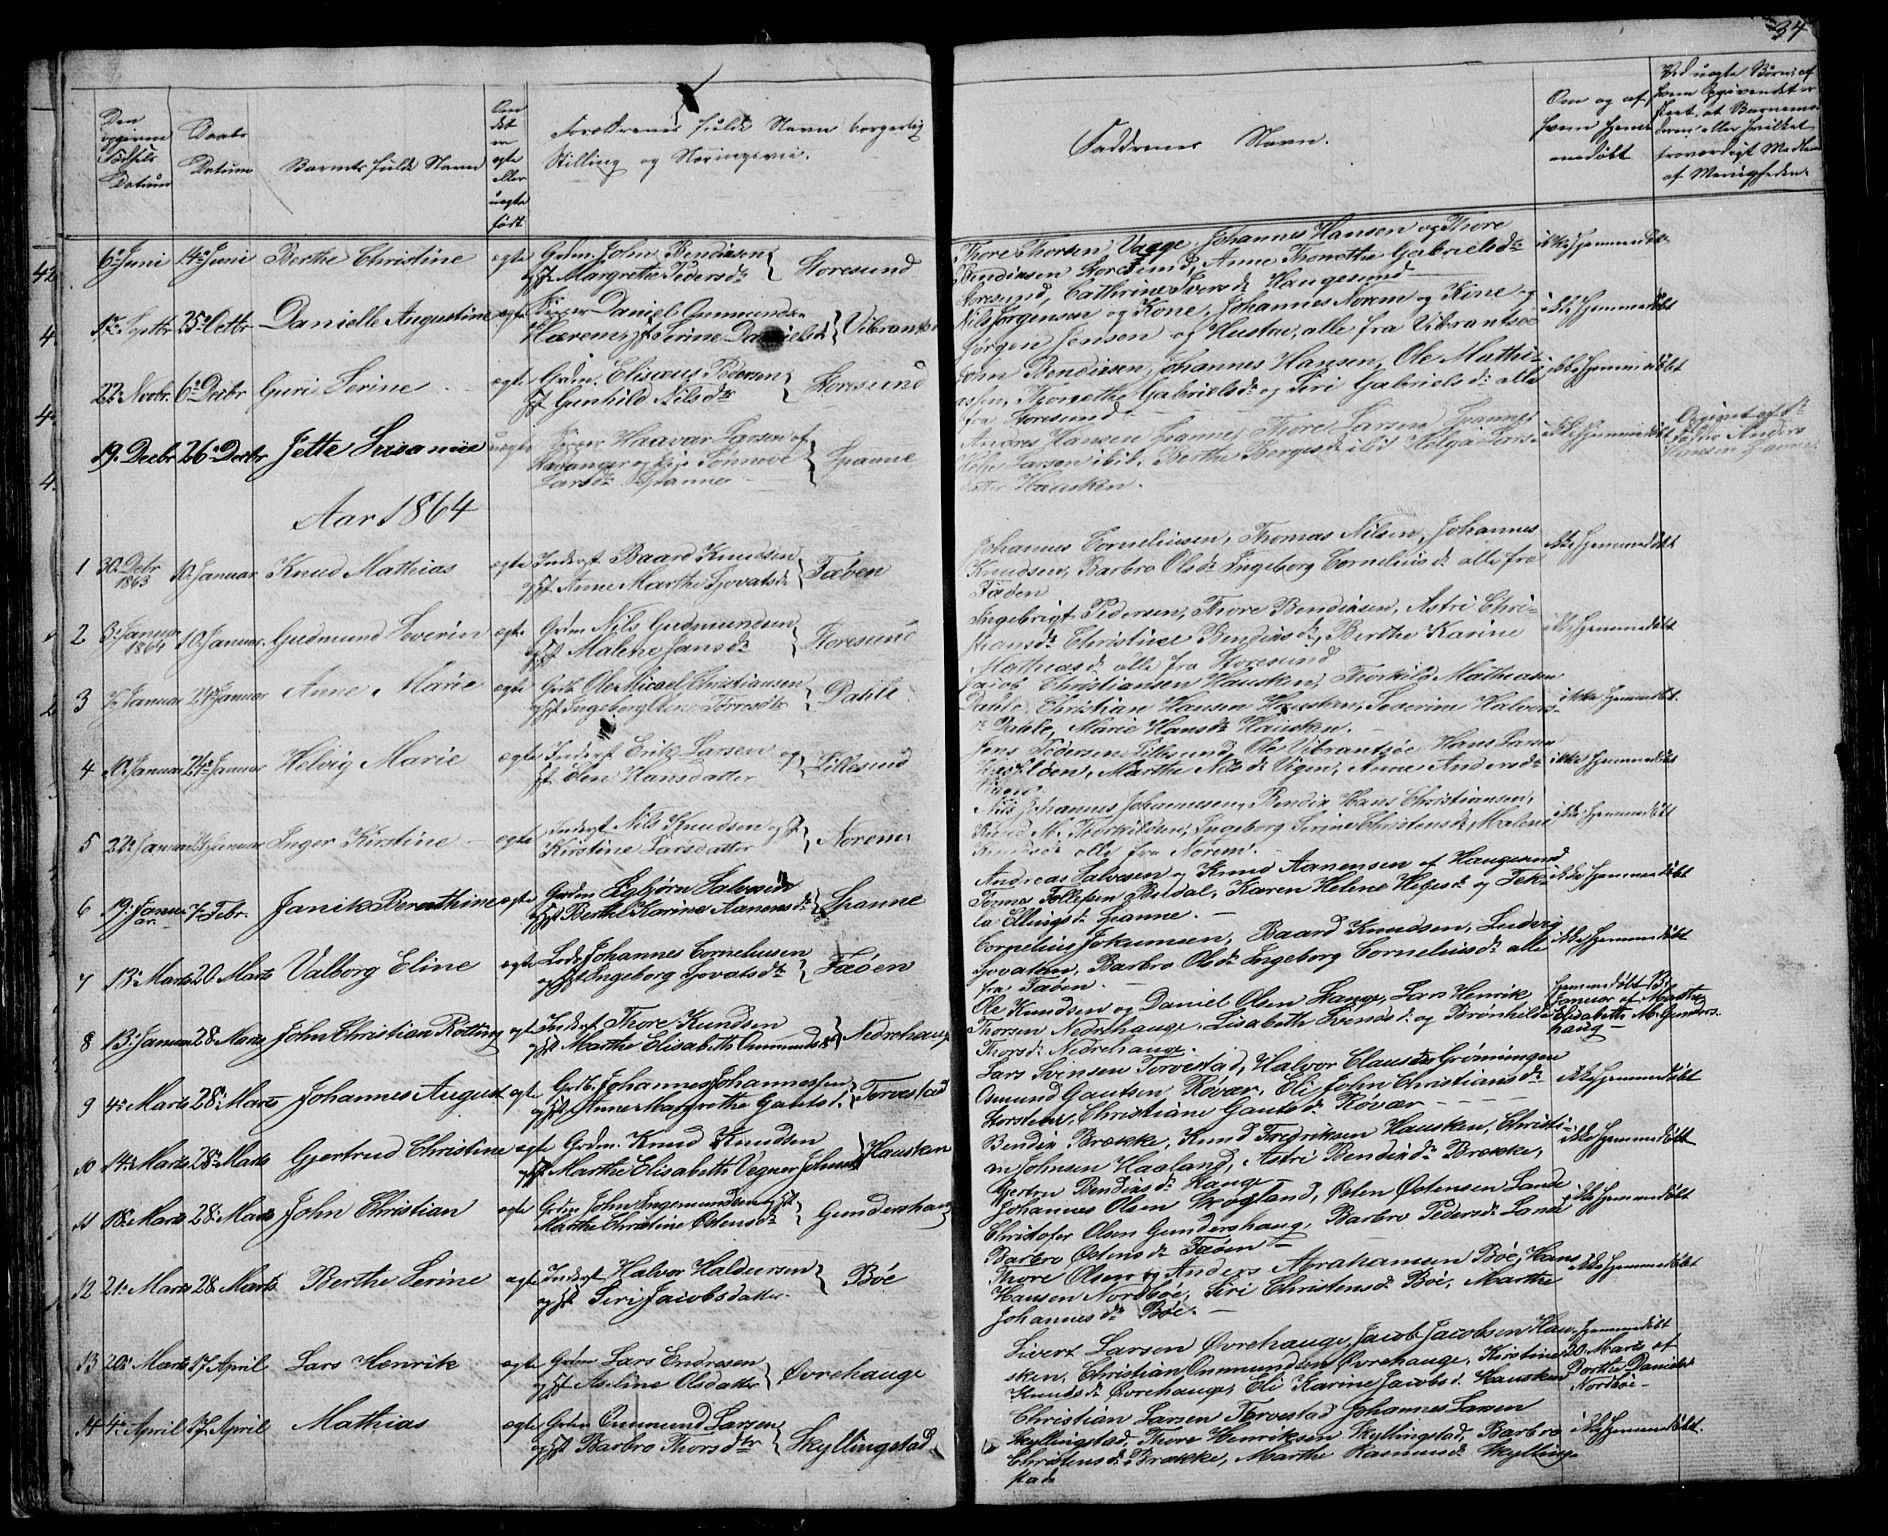 34
Den
opgivne
Fødsels
Datum
Daabs
Datum
Barnets fulde Navn
Om
det
er
ægte
eller
uægte
født
Forældrenes fulde Navn borgerlig
Stilling og Næringsvei.
Faddrenes Navn.
Om og af
hvem hjem-
medøbt
Ved uægte Børn; af
hvem Opgivendet er
skeet, at Barnemo-
deren eller hvilket
troværdigt Medlem
af Menigheden.
6 Juni 14 Juni Berthe Christine ægte Grdm John Bendixsen
Margrethe Pedersdr Storesund
Thore Thorsen Vaage, Johannes Hansen og Thore
Bendixsen Storesund, Anne Thonette Gabrielsdr
Storesund, Cathrine Iversdr Haugesund
ikke hjemmedøbt
1 Septbr 25 Octbr Danielle Augustine ægte Daniel Ommundsen
Hærem, Serine Danielsdr Vibrandsø
Nils Jørgensen og Kone, Johannes Norem og Kone og
Jørgen Jensen og Hustru, alle fra Vibrantsøe
ikke hjemmedøbt
22 Novbr. 6 Decbr Guri Serine ægte Grdm. Elisæus Pedersen
Gunhild Nilsdr Storesund
John Bendixsen, Johannes Hansen, Ole Mathi-
assen, Thonethe Gabrielsdr og Siri Gabrielsdr alle
fra Storesund
ikke hjemmedøbt
19 Decbr 26 Decbr Jette Susanne uægte Haavar Larsen af
Stavanger og Pige Sønnove
Larsdr Spanne Spanne
Andres Hansen Spanne, Thore Larsen Spanne,
Helje Larsen ibid, Berthe Børgesdr ibid Helga Lars-
datter Hausken.
ikke hjemmedøbt
Opgivet af
Anders
Hansen Spanne
Aar 1864
1 30 Debr
1863 10 Januar Knud Mathias ægte Inderst Baard Knudsen
Anne Marthe Sjovatsdr Fæøen
Johannes Corneliusen, Thomas Nilsen, Johannes
Knudsen, Barbro Olsdr Ingeborg Corneliusdr alle fra
Fæøen
ikke hjemmedøbt
2 3 Januar
1864 10 Januar. Gudmund Severin ægte Grdm Nils Gudmundsen
Malene Jansdr Storesund
Ingebrigt Pedersen, Thore Bendixsen, Astri Chri-
stiansdr Christine Bendixsdr, Berthe Karine
Mathiasdr alle fra Storesund
ikke hjemmedøbt
3 7 Januar 24 Januar Anne Marie ægte Ole Micael Christiansen
Ingeborg Torresdtr Dahle
Jacob Christiansen Hausken, Thorkild Mathiasen
Dahle, Christian Hansen Hausken, Severine Halvors-
dr Dahle, Marie Hansdr Hausken.
ikke hjemmedøbt
4 12 Januar 24 Januar Helvig Marie ægte Inderst Erik Larsen og
Elen Hansdatter Lillesund
Jens Pedersen Lillesund, Ole Vibrantsøe Hans Larsen
Marthe Nilsdr Vigen, Anne Andersdr
ikke hjemmedøbt
5 22 Januar 24 Januar Inger Kirstine ægte Inderst Nils Knudsen og
Kirstine Larsdatter Norem
Nils Johannes Johannesen, Bendix Hans Christiansen,
Knud M. Thorkildsen, Ingeborg Serine Christensdr Malene
Knudsdr alle fra Norem.
ikke hjemmedøbt
6 19 Janu-
ar 7 Febr. Janik Berathine ægte Grdm Esbjørn Salvesen
Berthe Karine Aanensdr Spanne
Andreas Salvesen og Knud Aanensen af Haugesund
Tønnes Tollefsen Buldal, Karen Helene Helgesdr og Tek-
la Ellingsdr Spanne.
ikke hjemmedøbt
7 13 Marts 20 Marts Valborg Eline ægte Lods Johannes Corneliussen
Ingeborg Sjovatsdr Fæøen
Cornelius Jokumsen, Baard Knudsen, Ludvig
Sjovatsen, Barbro Olsdr Ingeborg Corneliusdr alle
fra Fæøen.
ikke hjemmedøbt
8 13 Januar 28 Marts John Christian Rötting ægte Inderst Thore Knudsen
Marthe Elisabeth Ommundsdr Nedrehauge
Ole Knudsen og Daniel Olsen Stange, Lars Henrik
Thorsen Nedrehauge, Lisabeth Svendsdr og Brønhilde
Thorsdr Nedrehauge.
hjemmedøbt
Januar af Marthe
Elisabeth M. Gunders-
haug
9 4 Marts 28 Marts Johannes August ægte Johannes Johannessen
Anne Margrethe Gautsdr. Torvestad
Lars Svensen Torvestad, Halvor Clausen Grønningen
Osmund Gautsen Røvær, Eli John Christiansdr
Storsteen, Christiane Gautsdr Røvær
ikke hjemmedøbt
10 14 Marts 28 Marts Gjertrud Christine ægte Grdm. Knud Knudsen
Marthe Elisabeth Vegner Johnsdr Hausken
Bendix Brække, Knud Fredriksen Hausken, Christi-
an Johnsen Haaland, Astri Bendixdr Brække,
Gjertru Bendixsdr Hauge
ikke hjemmedøbt
11 18 Marts 28 Marts John Christian ægte Grdm John Ingemundsen
Marthe Christine Østensdr Gundershaug
Johannes Olsen Skogland, Østen Østensen Lande
Christofer Olsen Gundershaug, Barbro Pedersdr Lande
Barbro Østensdr Fæøen
ikke hjemmedøbt
12 21 Marts 28 Marts Berthe Serine ægte Inderst Halvor Haldorsen
Siri Jacobsdatter Bøe
Thore Olsen og Anders Abrahamsen Bøe, Hans
Hansen Nordbøe, Siri Christensdr Bøe, Marthe
Johannesdr Bøe.
ikke hjemmedøbt
13 20 Marts 17 April Lars Henrik ægte Grdm Lars Endresen
Aseline Olsdatter Øvrehauge
Sivert Larsen Øvrehauge, Jacob Jacobsen Hau-
sken, Christian Ommundsen Øvrehauge, Kirstine
Knudsdr Øvrehauge, Eli Karine Jacobsdr Hausken
hjemmedøbt
20 Marts af
Dorthe Danielsdr
Nordbøe
14 4 April 17 April Mathias ægte Grdm Ommund Larsen
Barbro Thorsdtr Skyllingstad.
Christian Larsen Torvestad Johannes Larsen
Skyllingstad, Thore Henriksen Skyllingstad, Barbro
Christensdr Brække, Marthe Rasmusdr Skylling-
stad
ikke hjemmedøbt.